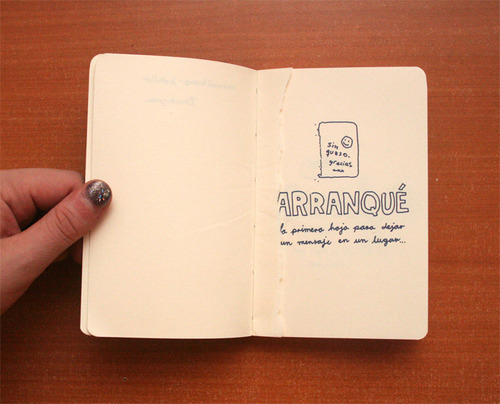 sin
queso.
gracias
ARRANQUÉ
la primera hoja para dejar
un mensaje en un lugar...